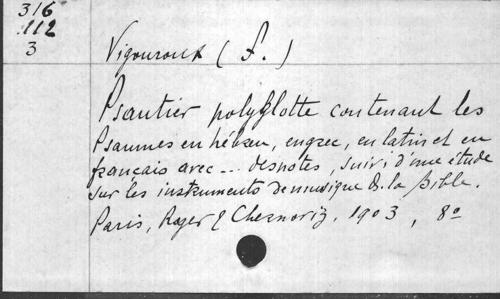 316
112
3
Vigouroux (F.)
Psautier polyglotte contenant les
Psaumes en hébreu, en grec, en latin et en
français avec ... des notes, suivi d'une étude
sur les instruments de musique de la Bible.
Paris, Roger & Chernoviz, 1903, 8o